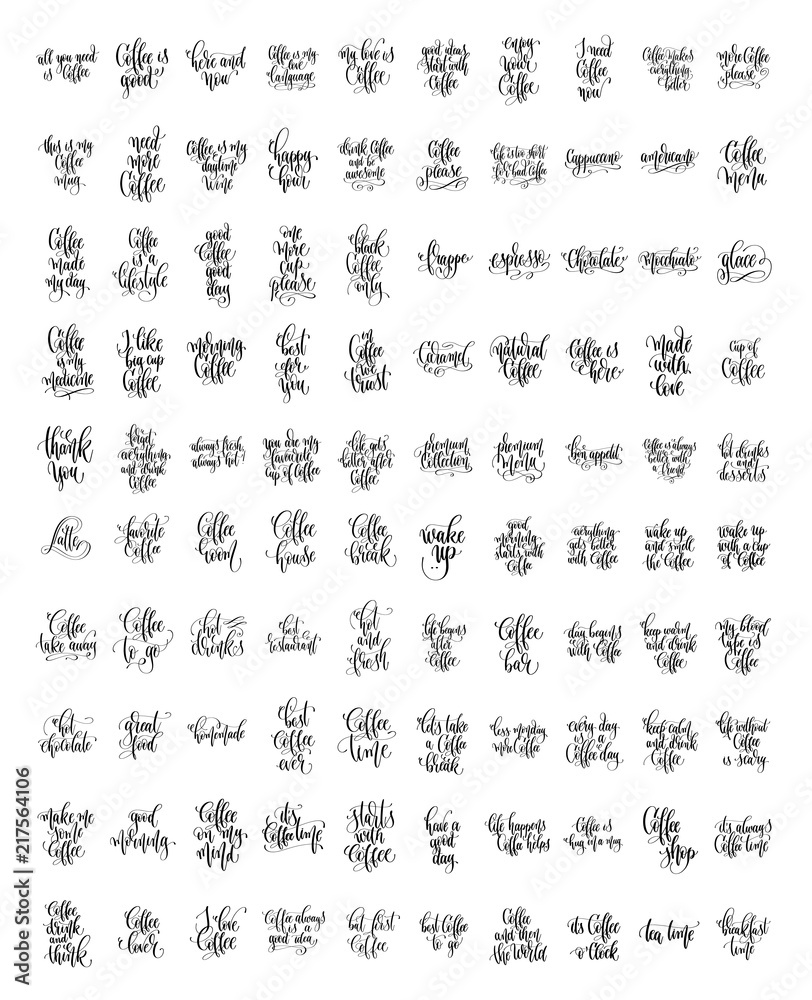 all you need
is Coffee
Coffee is
good
here and
now
Coffee is my
love
language
my love is
Coffee
good ideas
start with
Coffee
enjoy
your
Coffee
I need
Coffee
now
Coffee makes
everything
better
more Coffee
please
this is my
Coffee
mug
need
more
Coffee
Coffee is my
daytime
wine
happy
hour
drink Coffee
and be
awesome
Coffee
please
life is too short
for bad Coffee
Cappuccino
americano
Coffee
menu
Coffee
made
my day
Coffee
is a
lifestyle
good
Coffee
good
day
one
more
cup
please
black
Coffee
only
frappe
espresso
Chocolate
Mocchiato
glace
Coffee
is my
medicine
I like
big cup
Coffee
morning
Coffee
best
for
you
in
Coffee
we
trust
Caramel
natural
Coffee
Coffee is
here
made
with
love
Cup of
Coffee
thank
you
forget
everything
and drink
Coffee
always fresh,
always hot
you are my
favourite
cup of Coffee
life gets
better after
Coffee
premium
Collection
premium
Menu
bon appetit
Coffee is always
better with
a friend
hot drinks
and
desserts
Latte
favorite
Coffee
Coffee
room
Coffee
house
Coffee
break
wake
up
good
morning
starts with
Coffee
everything
gets better
with Coffee
wake up
and smell
the Coffee
wake up
with a cup
of Coffee
Coffee
take away
Coffee
to go
hot
drinks
best
restaurant
hot
and
fresh
life begins
after
Coffee
Coffee
bar
day begins
with Coffee
keep warm
and drink
Coffee
my blood
type is
Coffee
hot
chocolate
great
food
homemade
best
Coffee
ever
Coffee
time
let's take
a Coffee
break
less monday,
more Coffee
every day
is a
Coffee day
keep calm
and drink
Coffee
life without
Coffee
is scary
make me
some
Coffee
good
morning
Coffee
on my
mind
it's
Coffee time
starts
with
Coffee
have a
good
day
life happens
Coffee helps
Coffee is
hug in a mug
Coffee
shop
it's always
Coffee time
Coffee
drink
and
think
Coffee
lover
I love
Coffee
Coffee always
is a
good idea
but first
Coffee
best Coffee
to go
Coffee
and then
the World
it's Coffee
o'Clock
tea time
breakfast
time
Adobe Stock | #217564106